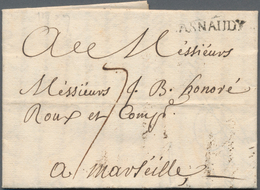 ARNAUD
A Messieurs
Messieurs J. B. honoré
Roux et Comp.e
7
a marseille